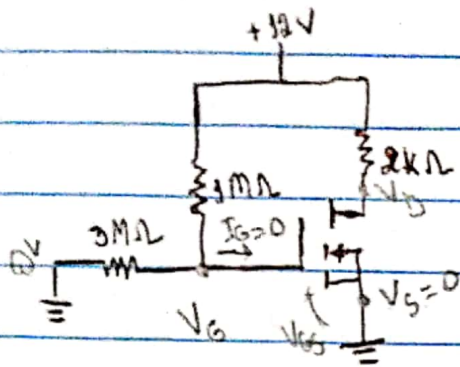 +12V
2KΩ
1MΩ
V_D
3MΩ
I_G=0
0V
V_S=0
V_G
V_GS